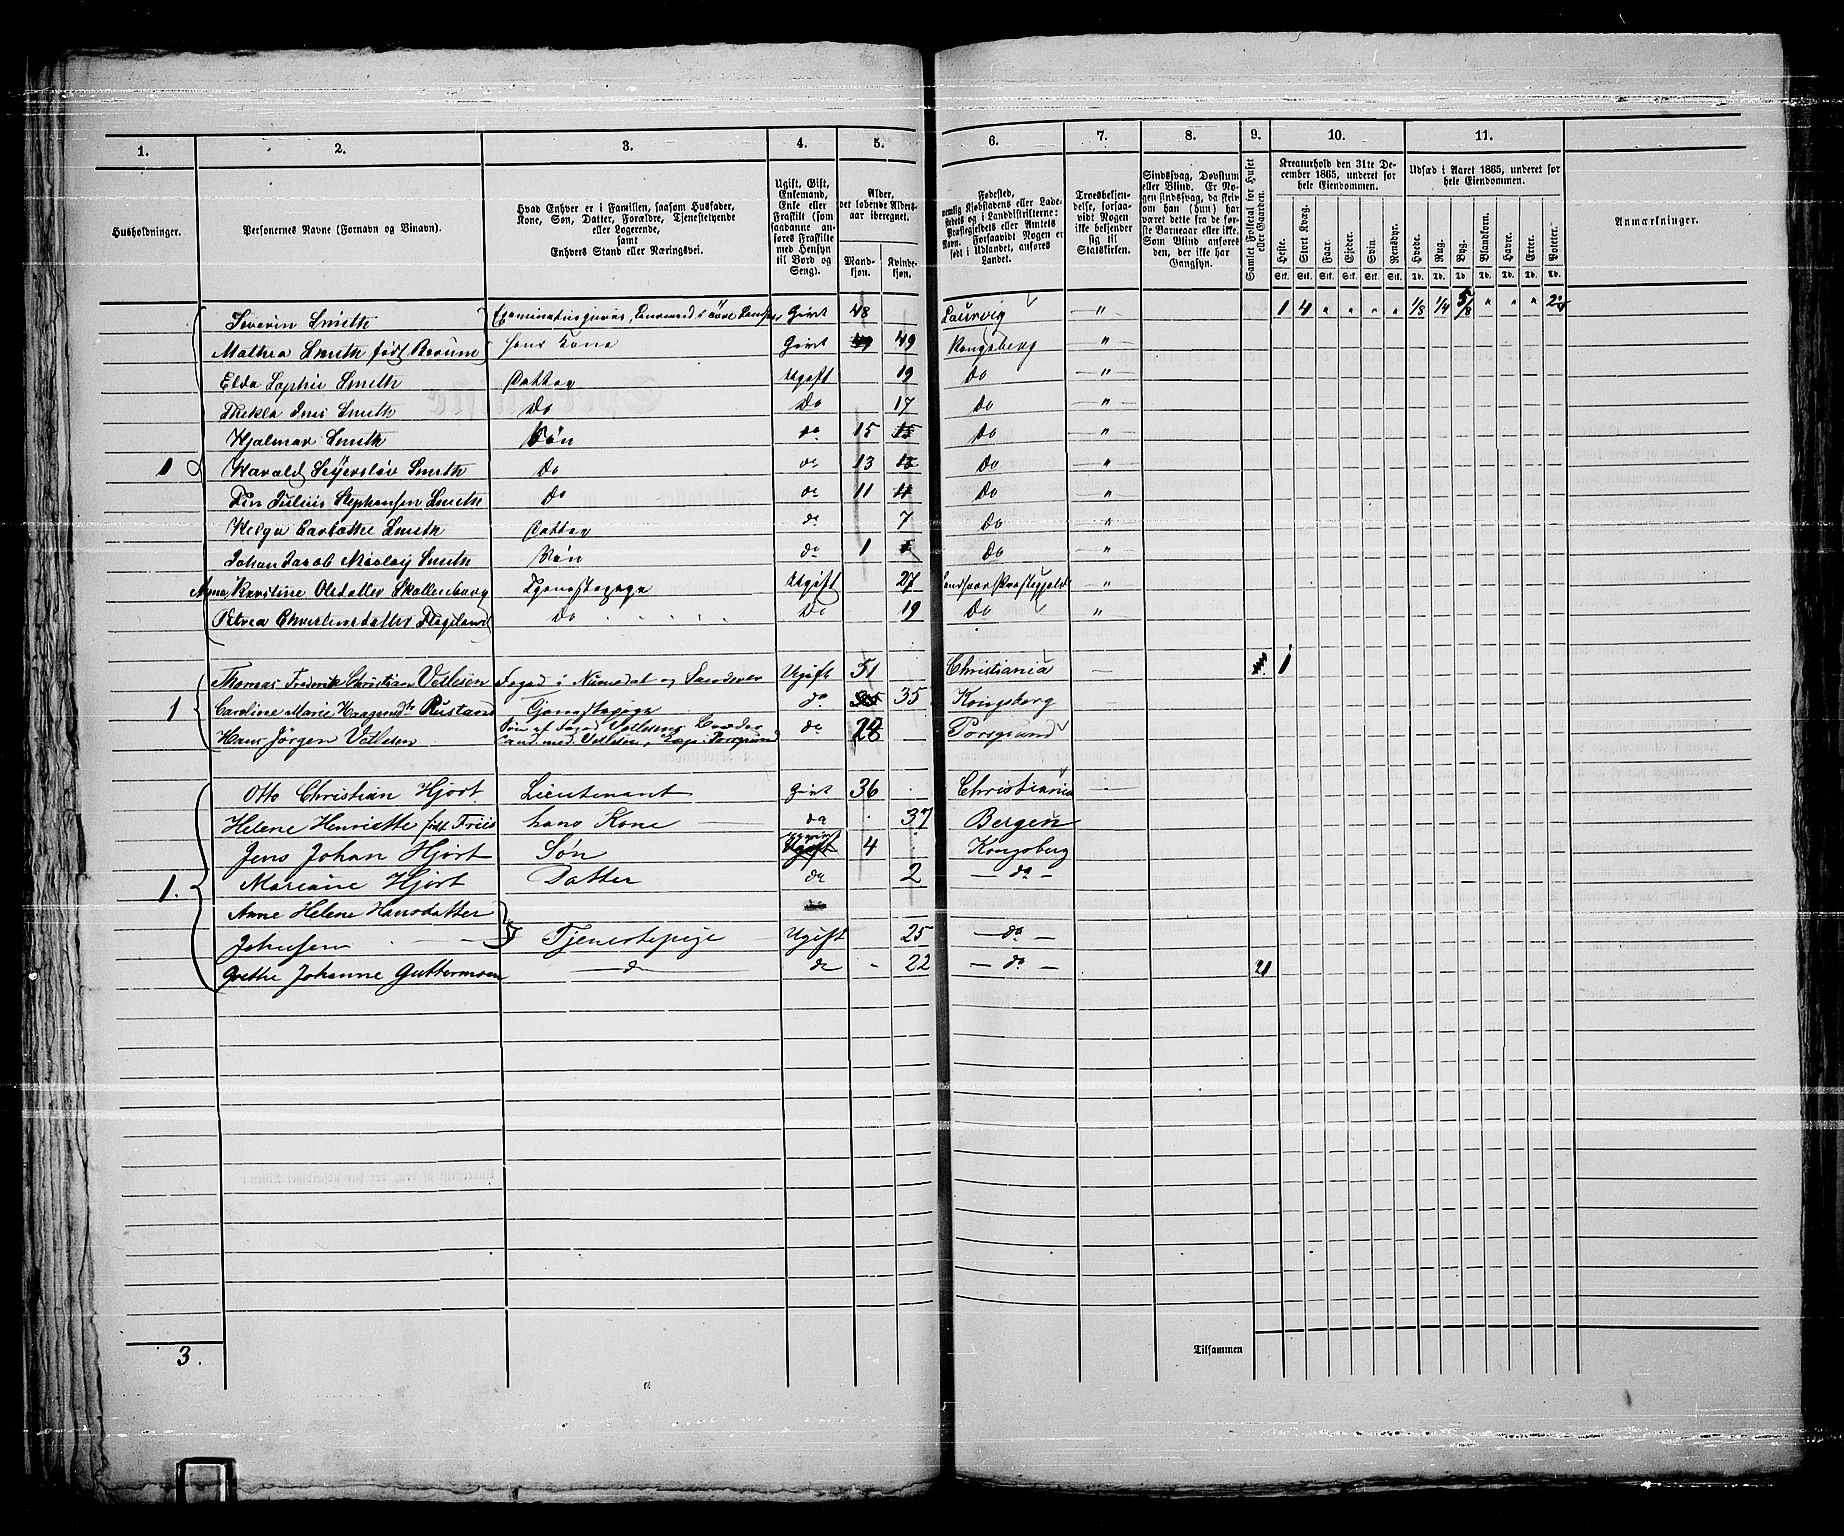 1. 2. 3. 4. 5. 6. 7. 8. 9. 10. 11.
Husholdninger.
Personernes Navne (Fornavn og Binavn).
Hvad Enhver er i Familien, saasom Husfader,
Kone, Søn, Datter, Forældre, Tjenestetyende
eller Logerende,
samt
Enhvers Stand eller Næringsvei.
Ugift, Gift,
Enkemand,
Enke eller
Fraskilt (som
saadanne an-
føres Fraskilte
med Hensyn
til Bord og
Seng).
Alder,
det løbende Alders-
aar iberegnet.
Mand-
kjøn.
Kvinde-
kjøn.
Fødested,
nemlig Kjøbstadens eller Lade-
stedets og i Landdistrikterne:
Præstegjeldets eller Amtets
Navn. Forsaavidt Nogen er
født i Udlandet, anføres
Landet.
Troesbekjen-
delse, forsaa-
vidt Nogen
ikke bekjender
sig til
Statskirken.
Sindssvag, Døvstum
eller Blind. Er No-
gen sindssvag, da skriv
om han (hun) har
været dette fra de før-
ste Barneaar eller ikke.
Som Blind anføres
den, der ikke har
Gangsyn.
Samlet Folketal for Huset
eller Gaarden.
Kreaturhold den 31te De-
cember 1865, underet for
hele Eiendommen.
Heste. Stort Kvæg. Faar. Gjeder. Svin. Rensdyr.
Stk. Stk. Stk. Stk. Stk. Stk.
Udsæd i Aaret 1865, underet for
hele Eiendommen.
Hvede. Rug. Byg. Blandkorn. Havre. Erter. Poteter.
Td. Td. Td. Td. Td. Td. Td.
Anmærkninger.
Severin Smith Gift 48 Laurvig " 1 4 " " " " 1/8 1/4 5/8 " " "
Mathea Smith født Borum hans Kone Givt 49 Kongsberg "
Elda Sophie Smith Datter Ugift 19 Do "
Thekla Smith Do Do 17 Do "
Hjalmar Smith Søn do 15 Do "
1 Harald Smith Do do 13 Do "
Julius Stephansen Smith Do do 11 Do "
Helga Smith Datter do 7 Do "
Johan Jacob Nicolay Smith Søn do 1 Do "
Anna Karstine Olsdatter Skollenborg Tjenestepige Ugift 27 "
Petrea Christensdatter Do Do 19 Do "
Thomas Frederik Christian Vetlesen Foged i Numedal og Sandsver Ugift 51 Christiania 1
1 Caroline Marie Rustand Tjenestepige do 35 Kongsberg
Hans Jörgen Vetlesen Søn af Foged Vetlesens Broder do 28 Porsgrund
Otto Christian Hjort Lieutenant Givt 36 Christiania
Helene Henriette født Friis hans Kone do 37 Bergen
Jens Johan Hjort Søn 4 Kongsberg
1. Mariane Hjort Datter do 2 do
Anne Helene Hansdatter
Johnsen Tjenestepige Ugift 25 do
Grethe Johanne Guttormsen d de 22 do 21
3.
Tilsammen